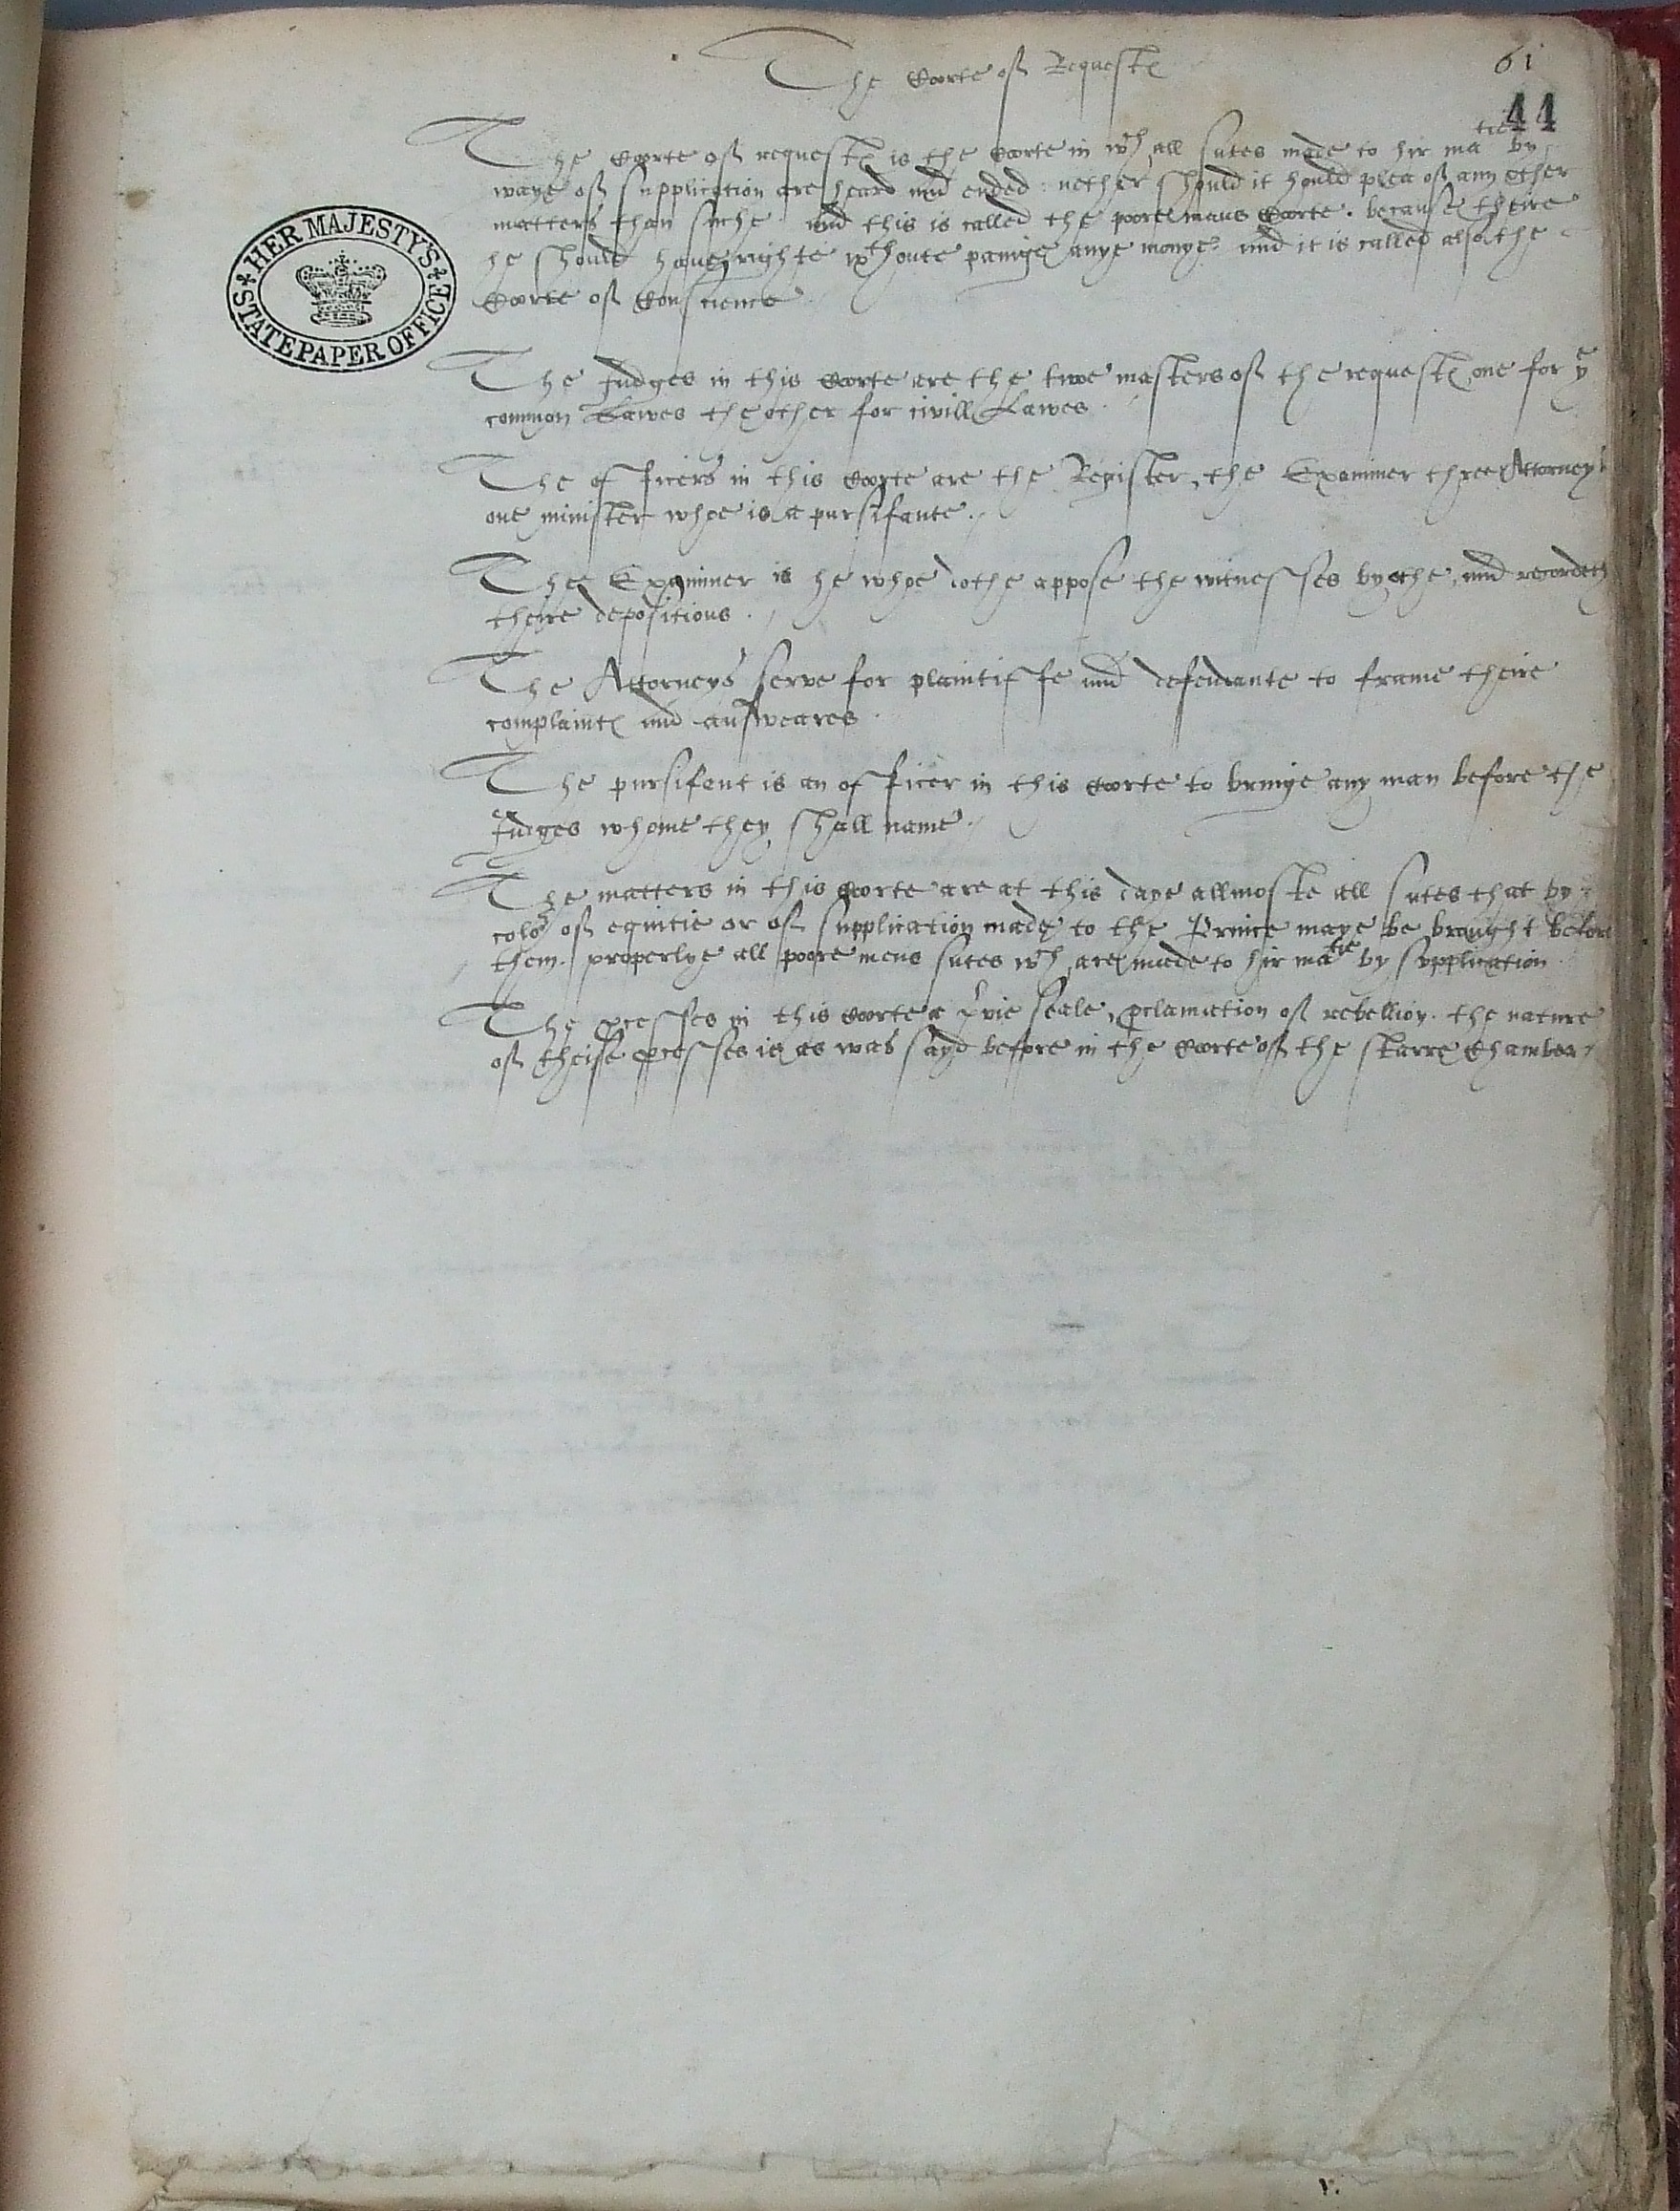 The Coorte of Requestes
61
44
The Coorte of requestes is the Coorte in wch all sutes made to hir matie by
waye of supplication are heard and ended: nether should it hould plea of any other
matters than suche and this is called the poore mans Coorte. because theire
he should have righte wthoute payinge anye monye. and it is called also the
Coorte of Conscience
HER MAJESTY'S STATE PAPER OFFICE
The Judges in this Coorte are the twoe masters of the requestes one for ye
common Lawes the other for civill Lawes.
The officers in this Coorte are the Register, the Examiner three Attorneys
one minister whoe is a pursifante.
The Examiner is he whoe dothe appose the witnesses by othe, and recordeth
theire depositions.
The Attorneys serve for plaintiffe and defendante to frame theire
complaintes and answeares.
The pursifant is an officer in this coorte to bringe any man before the
Judges whome they shall name.
The matters in this Coorte are at this daye allmoste all sutes that by
color of equitie or of supplication made to the Prince maye be brought before
them. properlye all poore mens sutes wch are made to hir matie by supplication
The processes in this coorte a privie seale, proclamation of rebellion. the nature
of theise processes is as was sayd before in the Coorte of the starre Chamber